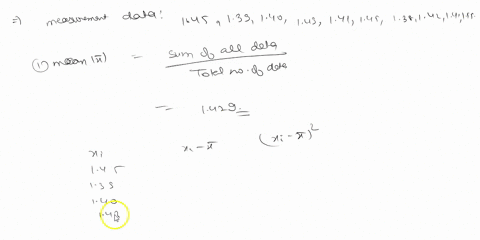 ⇒ measurement data: 1.45, 1.33, 1.40, 1.43, 1.41, 1.45, 1.38, 1.42,
(i) mean (x̄) = Sum of all data / Total no. of data
= 1.429
xi xi - x̄ (xi - x̄)²
1.45
1.33
1.40
1.43